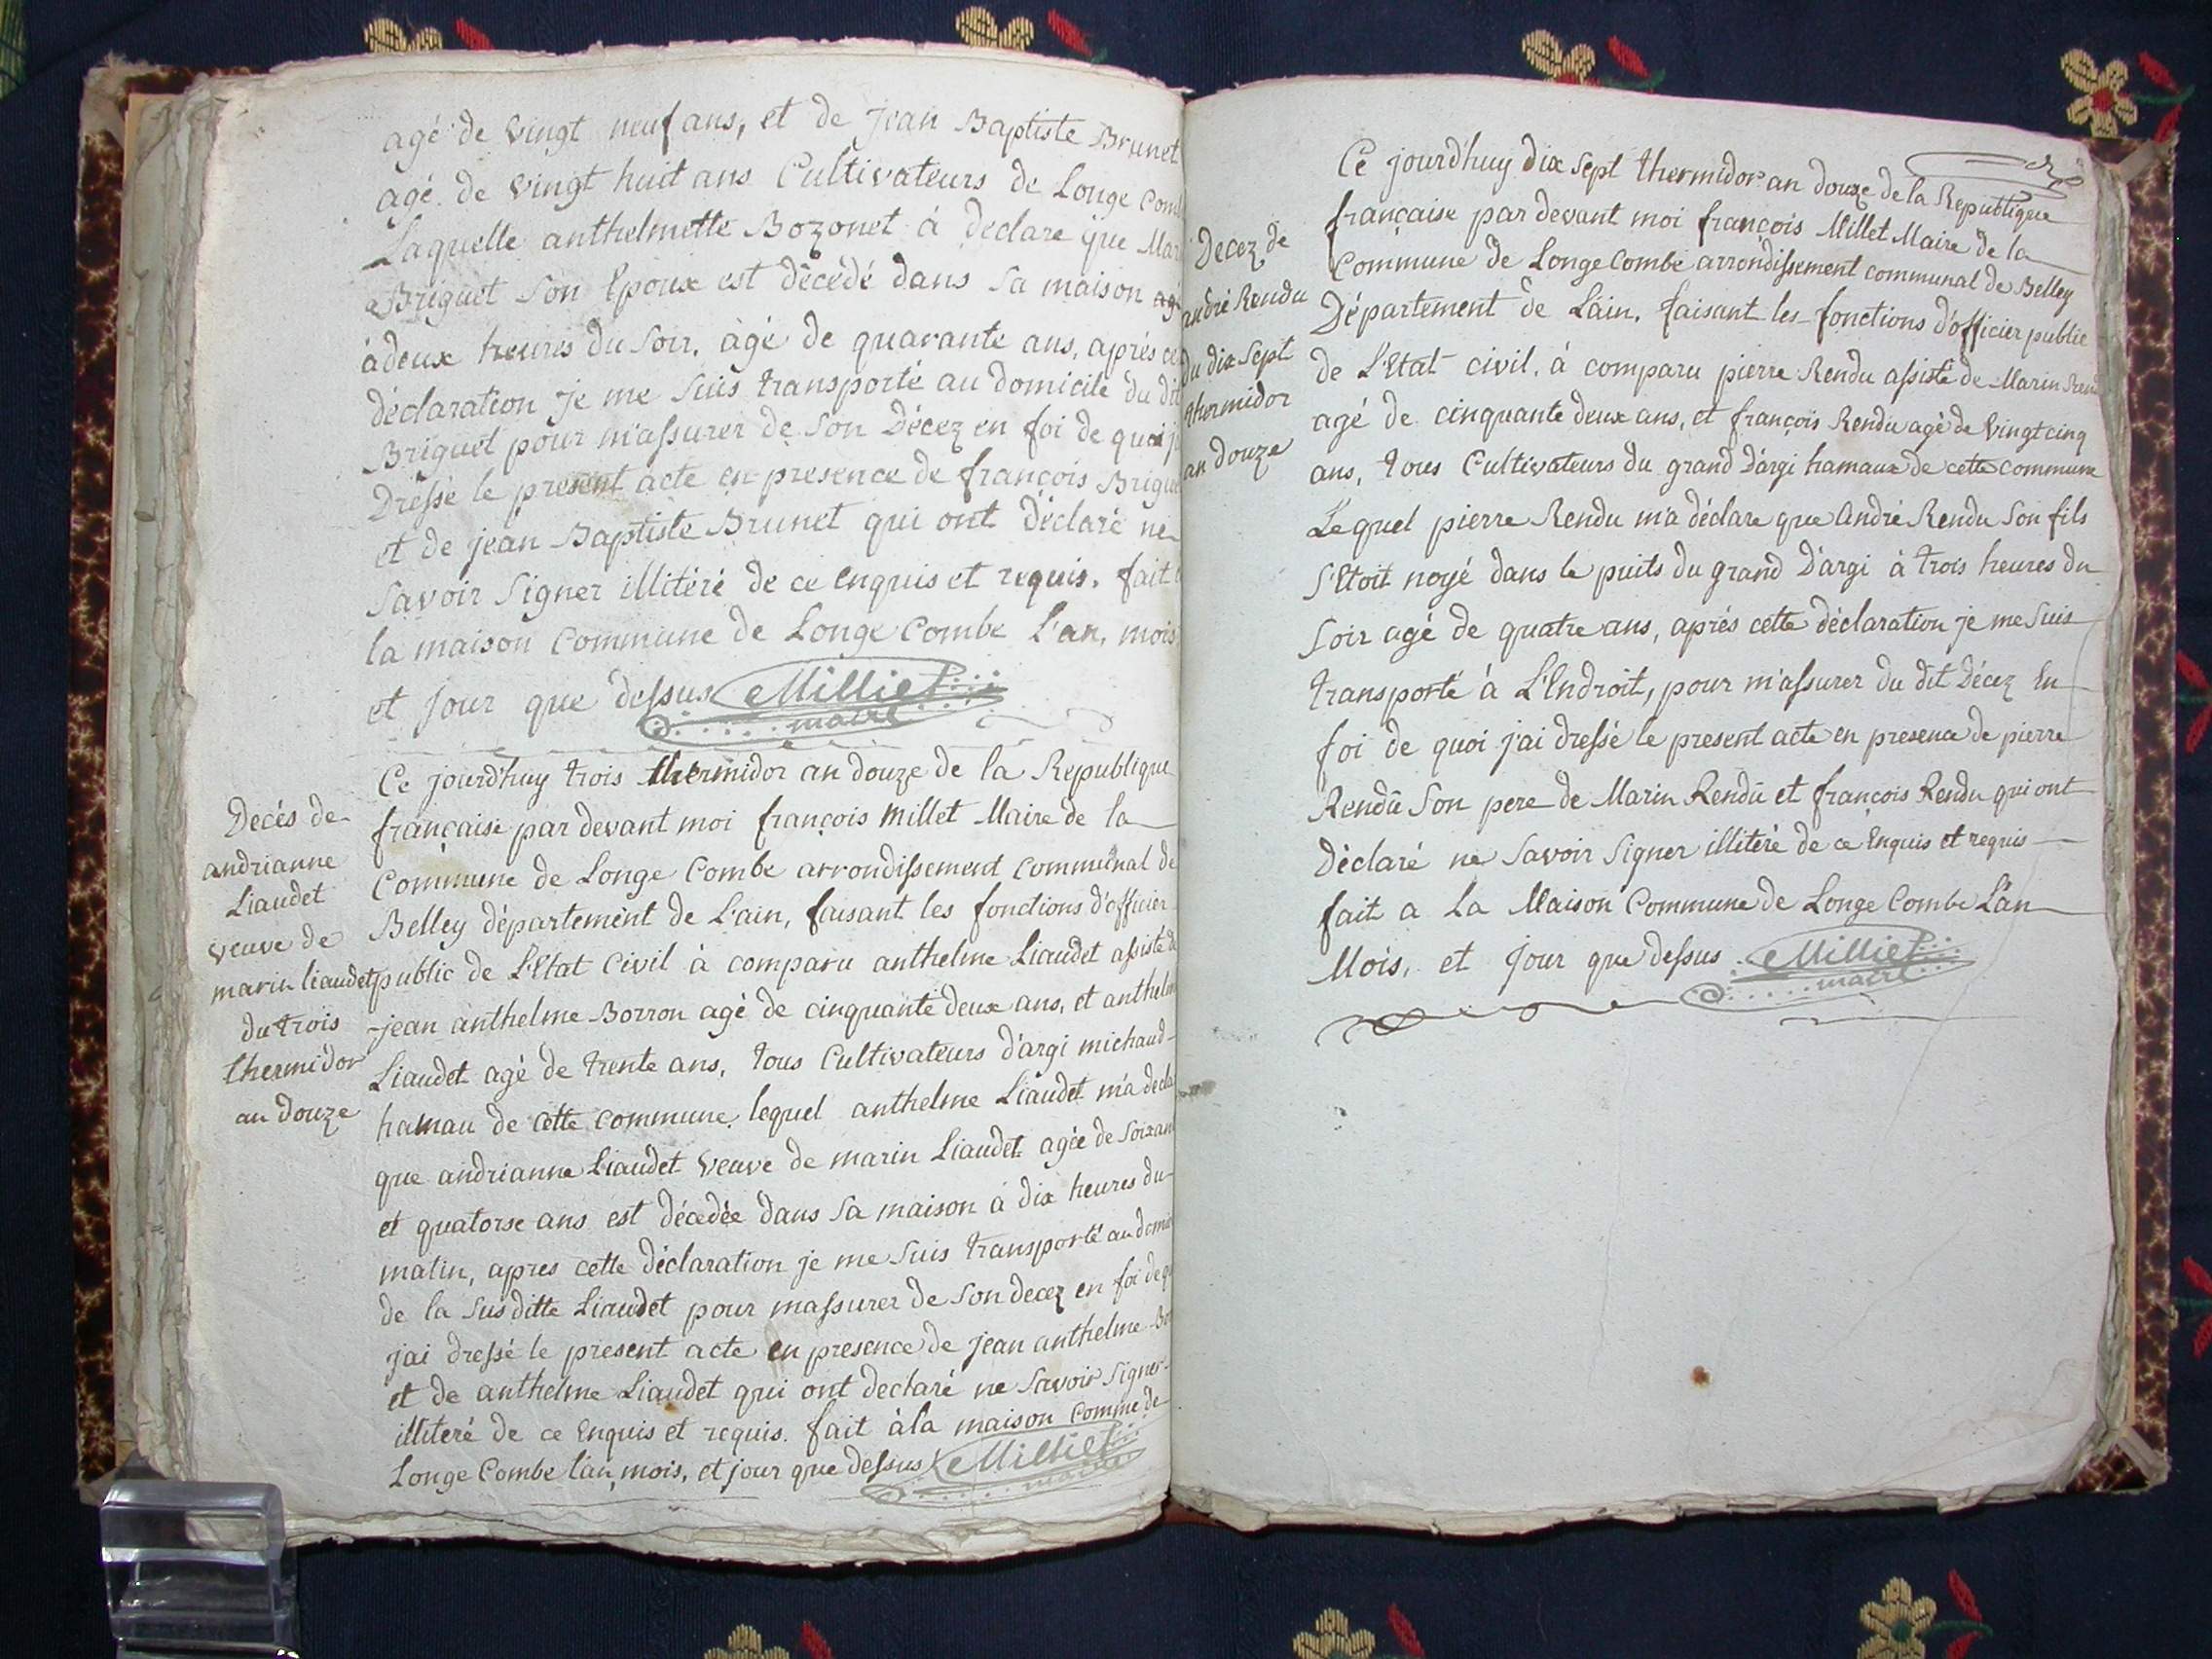 agé de vingt neuf ans, et de jean Baptiste Brunet
agé de vingt huit ans Cultivateurs de Longe
Laquelle anthelmette Bozonet à declare que
Briguet son Epoux est décédé dans sa maison
à deux heures du soir, âgé de quarante ans, aprés
déclaration je me suis transporté au domicile du
Briguet pour m'assurer de son Décez en foi de quoi
Dressé le present acte en presence de françois
et de jean Baptiste Brunet qui ont déclaré ne
savoir signer illitéré de ce enquis et requis. fait
la maison Commune de Longe Combe L'an, mois
et jour que dessus Milliet
maire
Decés de
andrianne
Liaudet
veuve de
marin liaudet
du trois
thermidor
an douze
Ce jourd'huy trois thermidor an douze de la Republique
française par devant moi françois Millet Maire de la
Commune de Longe Combe arrondissement communal de
Belley département de L'ain, faisant les fonctions d'officier
public de L'Etat Civil à comparu anthelme Liaudet assisté de
jean anthelme Borron agé de cinquante deux ans, et
Liaudet agé de trente ans, tous Cultivateurs d'argi michaud
hamau de cette commune. lequel anthelme Liaudet m'a
que andrianne Liaudet veuve de marin Liaudet agée de
et quatorse ans est décedée dans sa maison à dix heures du
matin, apres cette déclaration je me suis transporté au
de la susditte Liaudet pour massurer de son decez en foi de
jai dressé le present acte en presence de jean anthelme
et de anthelme Liaudet qui ont declaré ne savoir signer
illiteré de ce Enquis et requis. fait à la maison comme de
Longe Combe l'an, mois, et jour que dessus Milliet
maire
Decez de
andré Rendu
du dix sept
thermidor
an douze
Ce jourd'huy dix sept thermidor an douze de la Republique
française par devant moi françois Millet Maire de la
Commune de Longe Combe arrondissement communal de Belley
Département de L'ain, faisant les fonctions d'officier public
de L'Etat civil, à comparu pierre Rendu assisté de Marin
agé de cinquante deux ans, et françois Rendu agé de vingt cinq
ans, tous Cultivateurs du grand D'argi hamaux de cette commune
Lequel pierre Rendu m'a déclare que André Rendu son fils
s'Etoit noyé dans le puits du grand D'argi à trois heures du
soir agé de quatre ans, aprés cette déclaration je me suis
transporté à L'Endroit, pour m'assurer du dit Décez En
foi de quoi j'ai dressé le present acte en presence de pierre
Rendu son pere de Marin Rendu et françois Rendu qui ont
Déclaré ne savoir signer illitéré de ce Enquis et requis
fait a La Maison Commune de Longe Combe L'an
Mois, et jour que dessus Milliet
maire